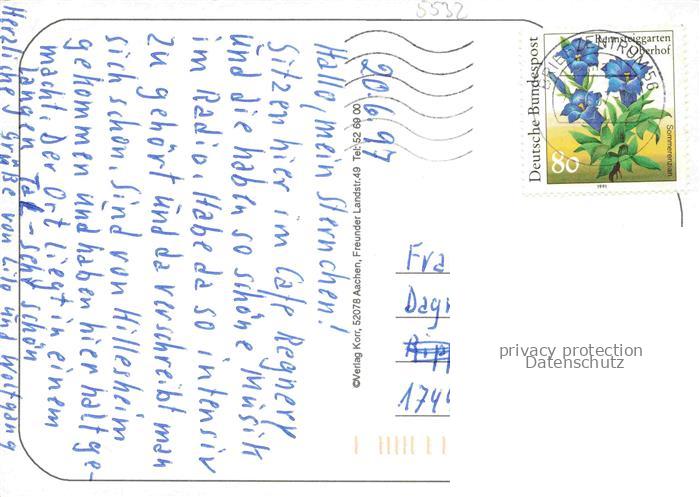 5532
20.6.97
Hallo, mein Sternchen!
Sitzen hier im Cafe Regnery
und die haben so schöne Musik
im Radio. Habe da so intensiv
zu gehört und da verschreibt man
sich schon. Sind von Hillesheim
gekommen und haben hier haltge-
macht. Der Ort liegt in einem
langen Tal - sehr schön
Herzliche Grüße von Lilo und Wolfgang
©Verlag Korr, 52078 Aachen, Freunder Landstr.49 Tel. 52 69 00
Deutsche Bundespost
Rennsteiggarten
Oberhof
Sommerenzian
80
1991
BRIEFZENTRUM 56
Fra
Dagm
174
privacy protection
Datenschutz